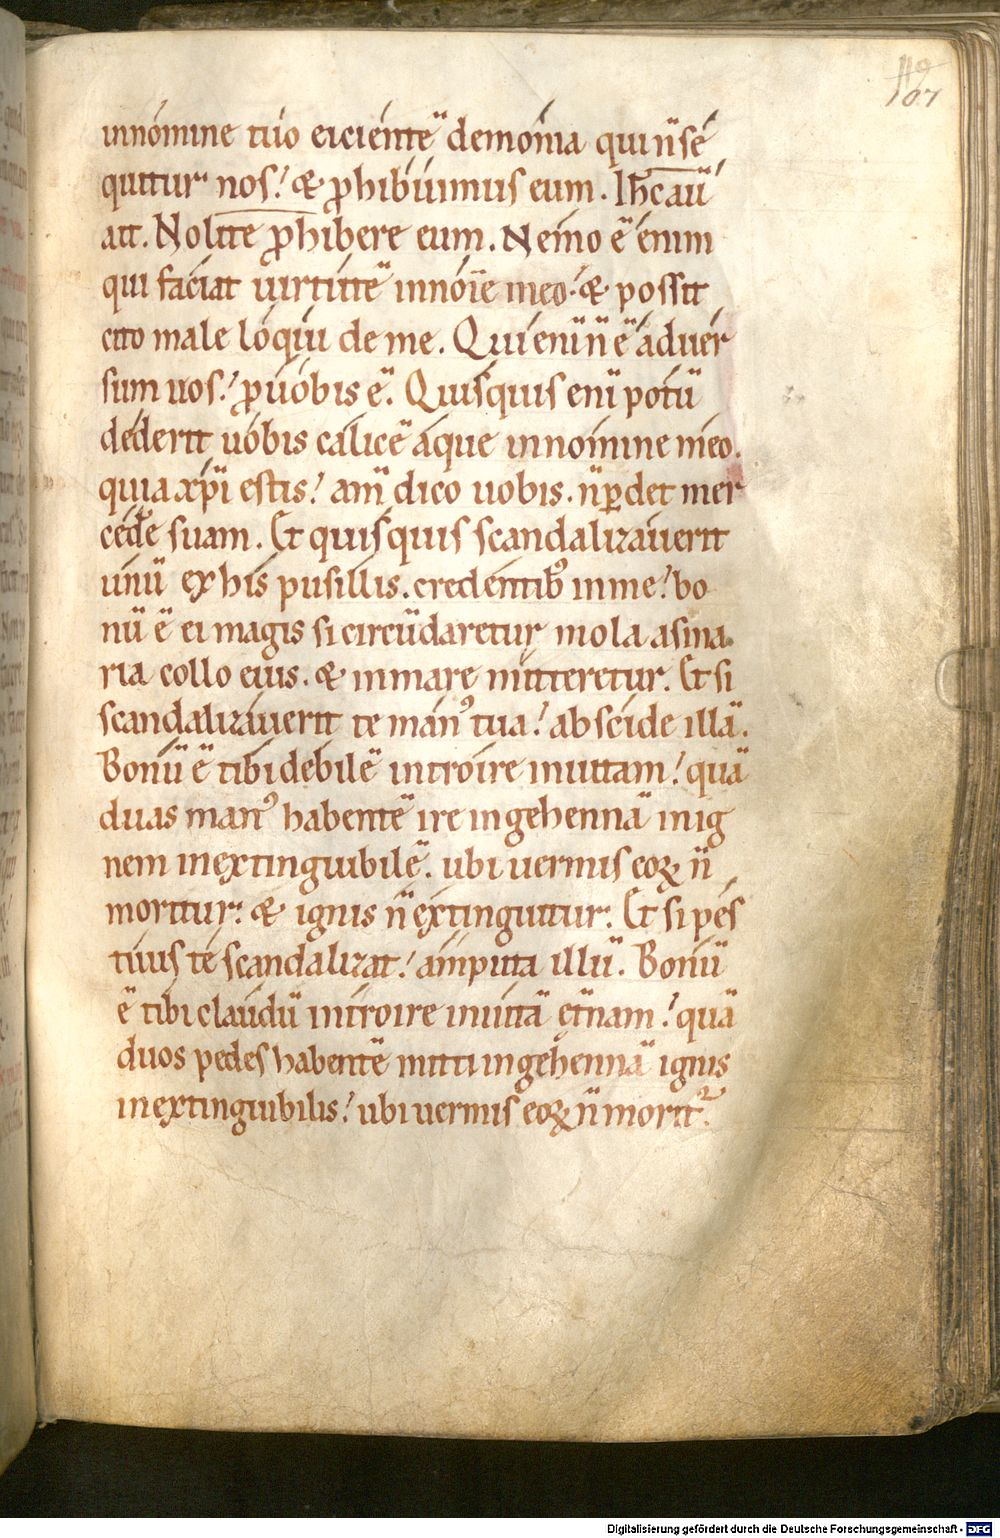 119
107
innomine tuo eicientē demonia qui n̄ se
quitur nos. & ꝓhibuimus eum. Ih̄c au̅
ait. Nolite ꝓhibere eum. Nemo ē enim
qui faciat uirtutē innoīe meo. & possit
cito male loqui de me. Qui eni̅ n̄ ē aduer
sum uos. ꝓ uobis ē. Quisquis eni̅ potū
dederit uobis calicē aque innomine meo.
quia xp̄i estis. am̄ dico uobis. n̄ ꝑdet mer
cedē suam. Et quisquis scandalizauerit
unū ex his pusillis. credentibꝰ inme. bo
nū ē ei magis si circūdaretur mola asina
ria collo eius. & inmare mitteretur. Et si
scandalizauerit te manꝰ tua. abscide illā.
Bonū ē tibi debilē introire inuitam. quā
duas manꝰ habentē ire ingehennā inig
nem inextinguibilē. ubi uermis eoꝝ n̄
moritur. & ignis n̄ extinguitur. Et si pes
tuus te scandalizat. amputa illū. Bonū
ē tibi claudū introire inuitā et̄nam. quā
duos pedes habentē mitti ingehennā ignis
inextinguibilis. ubi uermis eoꝝ n̄ moritᷣ.
Digitalisierung gefördert durch die Deutsche Forschungsgemeinschaft - DFG